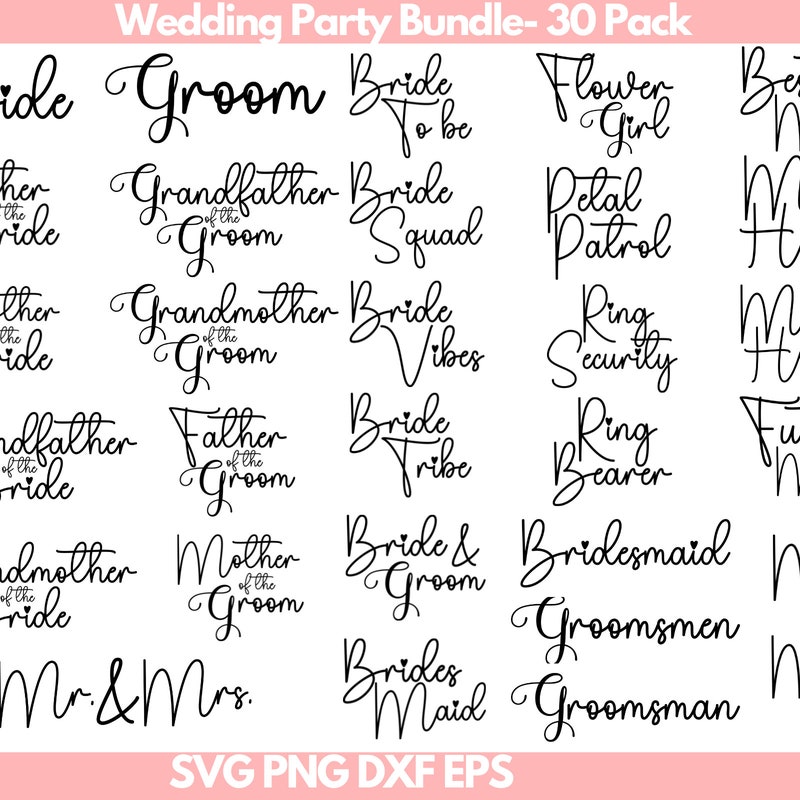 Wedding Party Bundle- 30 Pack
ide
her
the
ride
ther
the
ide
ndfather
of the
ride
ndmother
of the
ride
Mr.&Mrs.
Groom
Grandfather
of the
Groom
Grandmother
of the
Groom
Father
of the
Groom
Mother
of the
Groom
Bride
To be
Bride
Squad
Bride
Vibes
Bride
Tribe
Bride &
Groom
Brides
Maid
Flower
Girl
Petal
Patrol
Ring
Security
Ring
Bearer
Bridesmaid
Groomsmen
Groomsman
Bes
M
H
M
H
Fu
SVG PNG DXF EPS